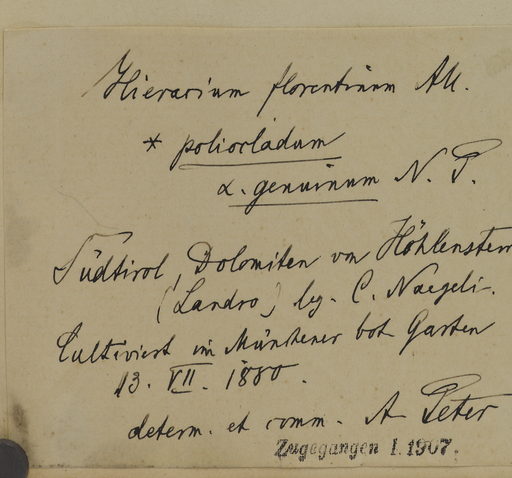 Hieracium florentinum All.
* poliocladum
α. genuinum N. P.
Südtirol, Dolomiten von Höhlenstein
(Landro) leg. C. Naegeli.
Cultiviert im Münchener bot. Garten
13. VII. 1880.
determ. et comm. A. Peter
Zugegangen I. 1907.